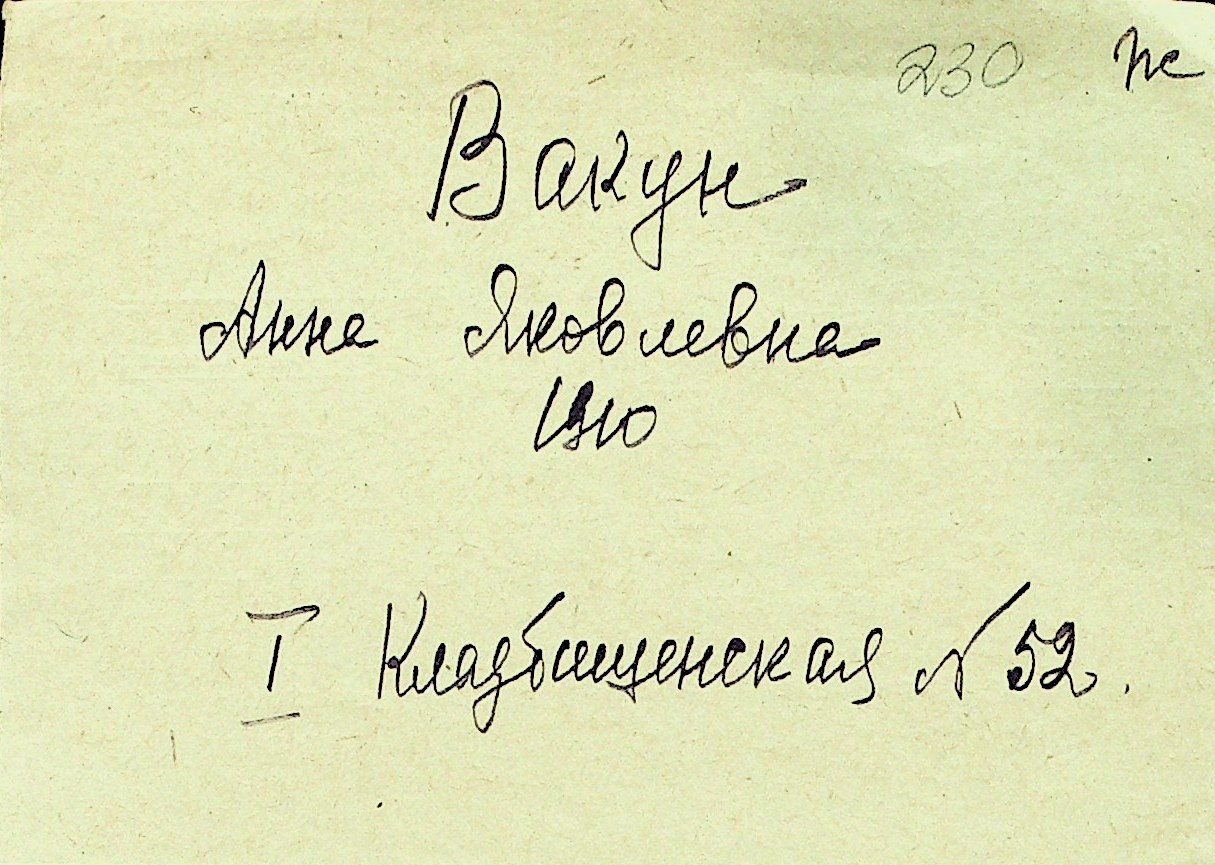 230
Вакун
Анна Яковлевна
1910
I Кладбищенская N 52.